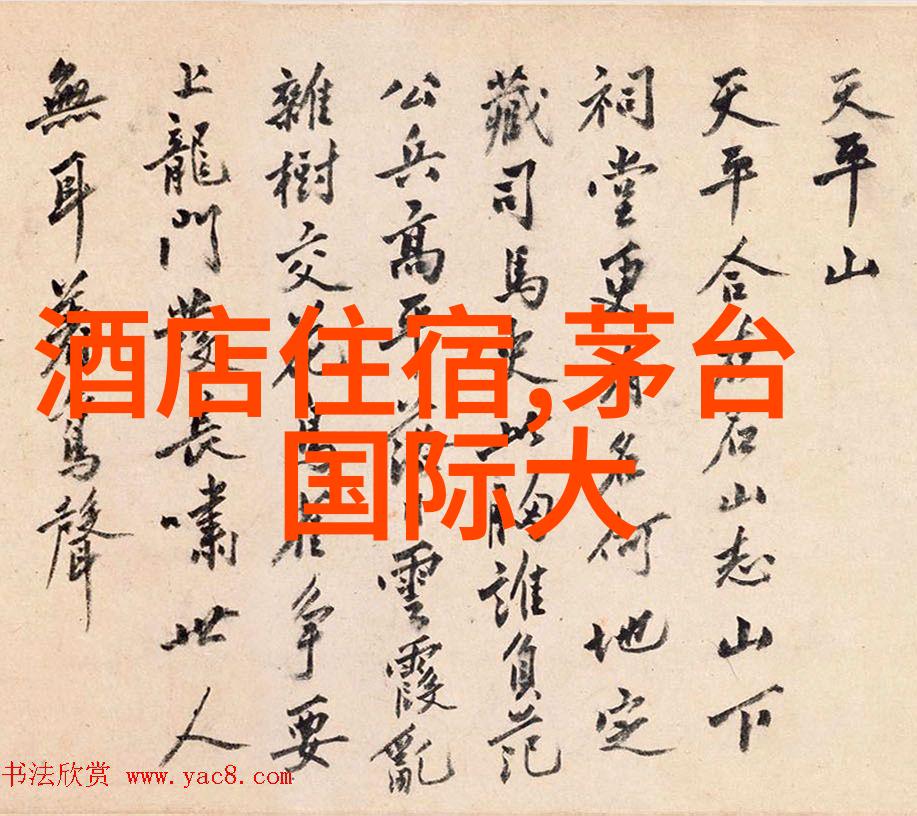 天平山
天平合石山志山下
祠堂更有名何地定
藏司馬史此胸誰負范
公兵高平雲霞亂
雜樹交花鳥雀爭要
上龍門發長嘯世人
無耳著聲
酒店住宿,茅台
国际大
书法欣赏 www.yac8.com